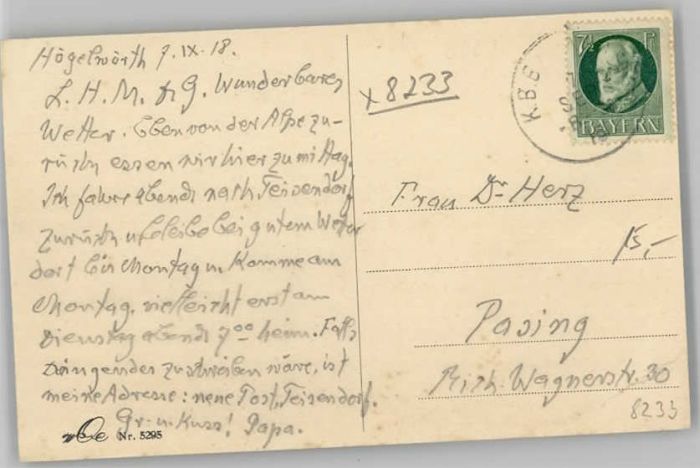 Högelwörth 7.IX.18.
L. H. M. & G. Wunderbares
Wetter. Eben von der Alpe zu-
rück essen wir hier zu mittag.
Ich fahre abends nach Teisendorf
zurück u. bleibe bei gutem Wetter
dort bis Montag u. komme am
Montag, vielleicht erst am
Dienstag abends 7⁰⁰ heim. Falls
dringendes zu schreiben wäre, ist
meine Adresse: neue Post, Teisendorf.
Gr. u. Kuss! Papa.
Nr. 5295
x 8233
K.B.B
7½ P
BAYERN
Frau Dr Herz
15,-
Pasing
Rich. Wagnerstr. 30
8233